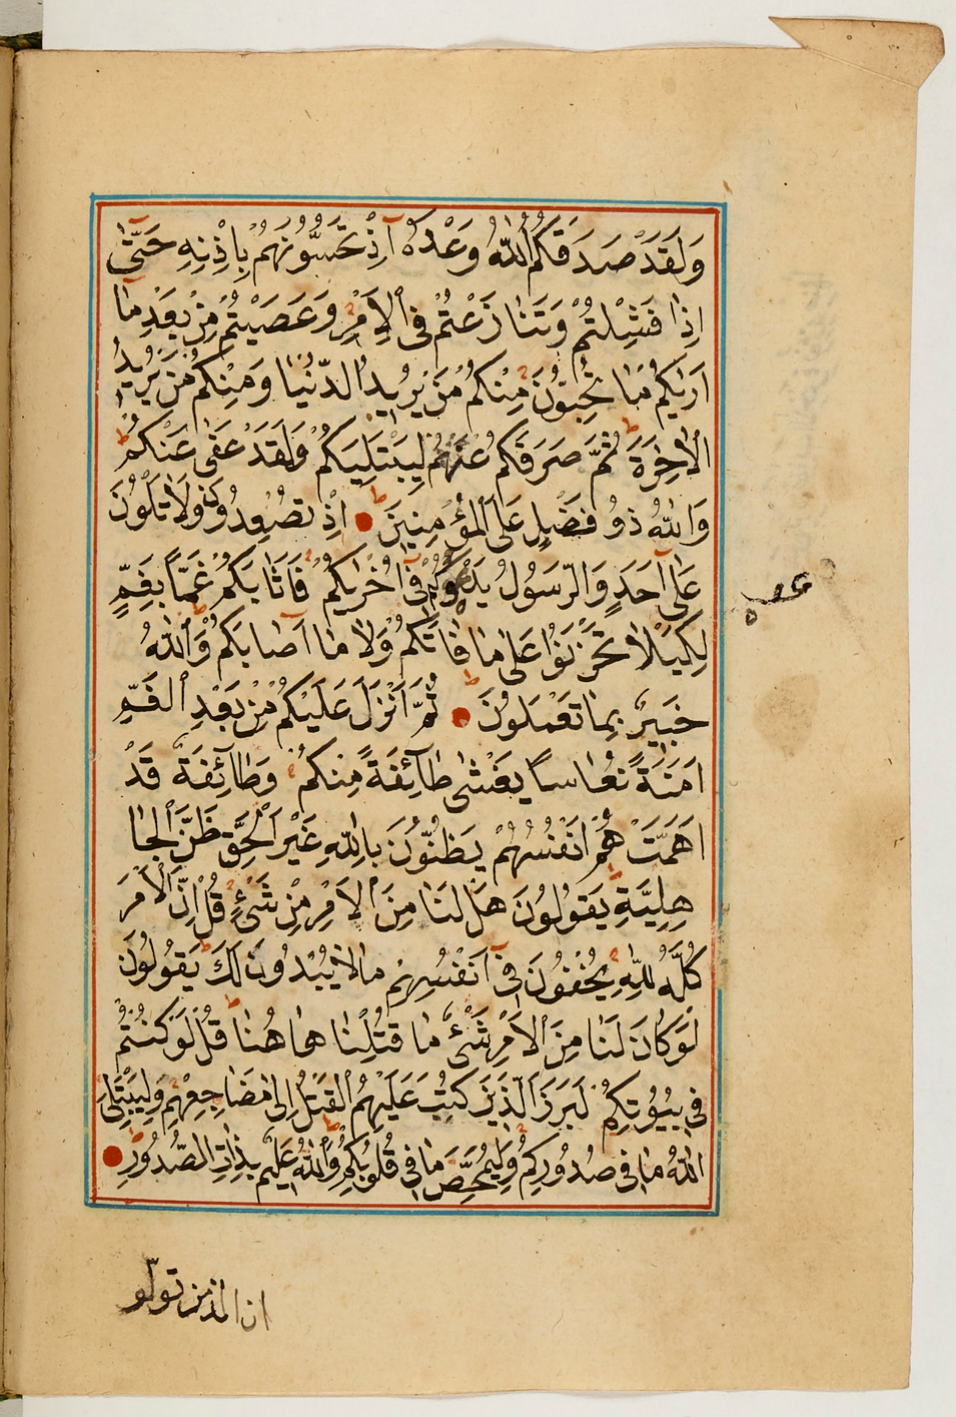 وَلَقَدْ صَدَقَكُمُ اللّٰهُ وَعْدَهُ اِذْ تَحُسُّونَهُمْ بِاِذْنِهِ حَتّٰى
اِذَا فَشِلْتُمْ وَتَنَازَعْتُمْ فِى الْاَمْرِ وَعَصَيْتُمْ مِنْ بَعْدِ مَا
اَرٰيكُمْ مَا تُحِبُّونَ مِنْكُمْ مَنْ يُرِيدُ الدُّنْيَا وَمِنْكُمْ مَنْ يُرِيدُ
الْاٰخِرَةَ ثُمَّ صَرَفَكُمْ عَنْهُمْ لِيَبْتَلِيَكُمْ وَلَقَدْ عَفٰى عَنْكُمْ
وَاللّٰهُ ذُو فَضْلٍ عَلَى الْمُؤْمِنِينَ اِذْ تُصْعِدُونَ وَلَا تَلْوُنَ
عَلٰى اَحَدٍ وَالرَّسُولُ يَدْعُوكُمْ فِى اُخْرٰيكُمْ فَاَثَابَكُمْ غَمًّا بِغَمٍّ
لِكَيْلَا تَحْزَنُوا عَلٰى مَا فَاتَكُمْ وَلَا مَا اَصَابَكُمْ وَاللّٰهُ
خَبِيرٌ بِمَا تَعْمَلُونَ ثُمَّ اَنْزَلَ عَلَيْكُمْ مِنْ بَعْدِ الْغَمِّ
اَمَنَةً نُعَاسًا يَغْشٰى طَآئِفَةً مِنْكُمْ وَطَآئِفَةٌ قَدْ
اَهَمَّتْهُمْ اَنْفُسُهُمْ يَظُنُّونَ بِاللّٰهِ غَيْرَ الْحَقِّ ظَنَّ الْجَا
هِلِيَّةِ يَقُولُونَ هَلْ لَنَا مِنَ الْاَمْرِ مِنْ شَىْءٍ قُلْ اِنَّ الْاَمْرَ
كُلَّهُ لِلّٰهِ يُخْفُونَ فِى اَنْفُسِهِمْ مَا لَا يُبْدُونَ لَكَ يَقُولُونَ
لَوْ كَانَ لَنَا مِنَ الْاَمْرِ شَىْءٌ مَا قُتِلْنَا هٰاهُنَا قُلْ لَوْ كُنْتُمْ
فِى بُيُوتِكُمْ لَبَرَزَ الَّذِينَ كُتِبَ عَلَيْهِمُ الْقَتْلُ اِلٰى مَضَاجِعِهِمْ وَلِيَبْتَلِىَ
اللّٰهُ مَا فِى صُدُورِكُمْ وَلِيُمَحِّصَ مَا فِى قُلُوبِكُمْ وَاللّٰهُ عَلِيمٌ بِذَاتِ الصُّدُورِ
ان الذين تولّو